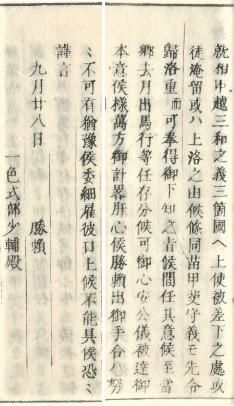 就相甲越三和之義三箇國ヘ上使被差下之處或
徒淹留或ハ上洛之由候條同苗甲斐守義モ先令
歸洛重而可奉得御下知之旨候間任其意候至當
鄉去月出馬行等任存分候可御心安公儀被達御
本意候樣萬方御計畧肝心候勝賴出御手合ハ努
〻不可有猶豫候委細雇彼口上候不能具候恐〻
謹言
九月廿八日　勝賴
一色式部少輔殿